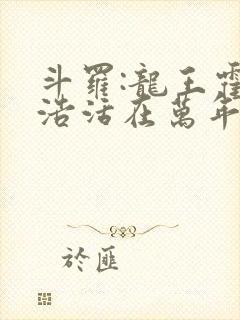 斗羅:龍王霍
浩活在萬年
於匪